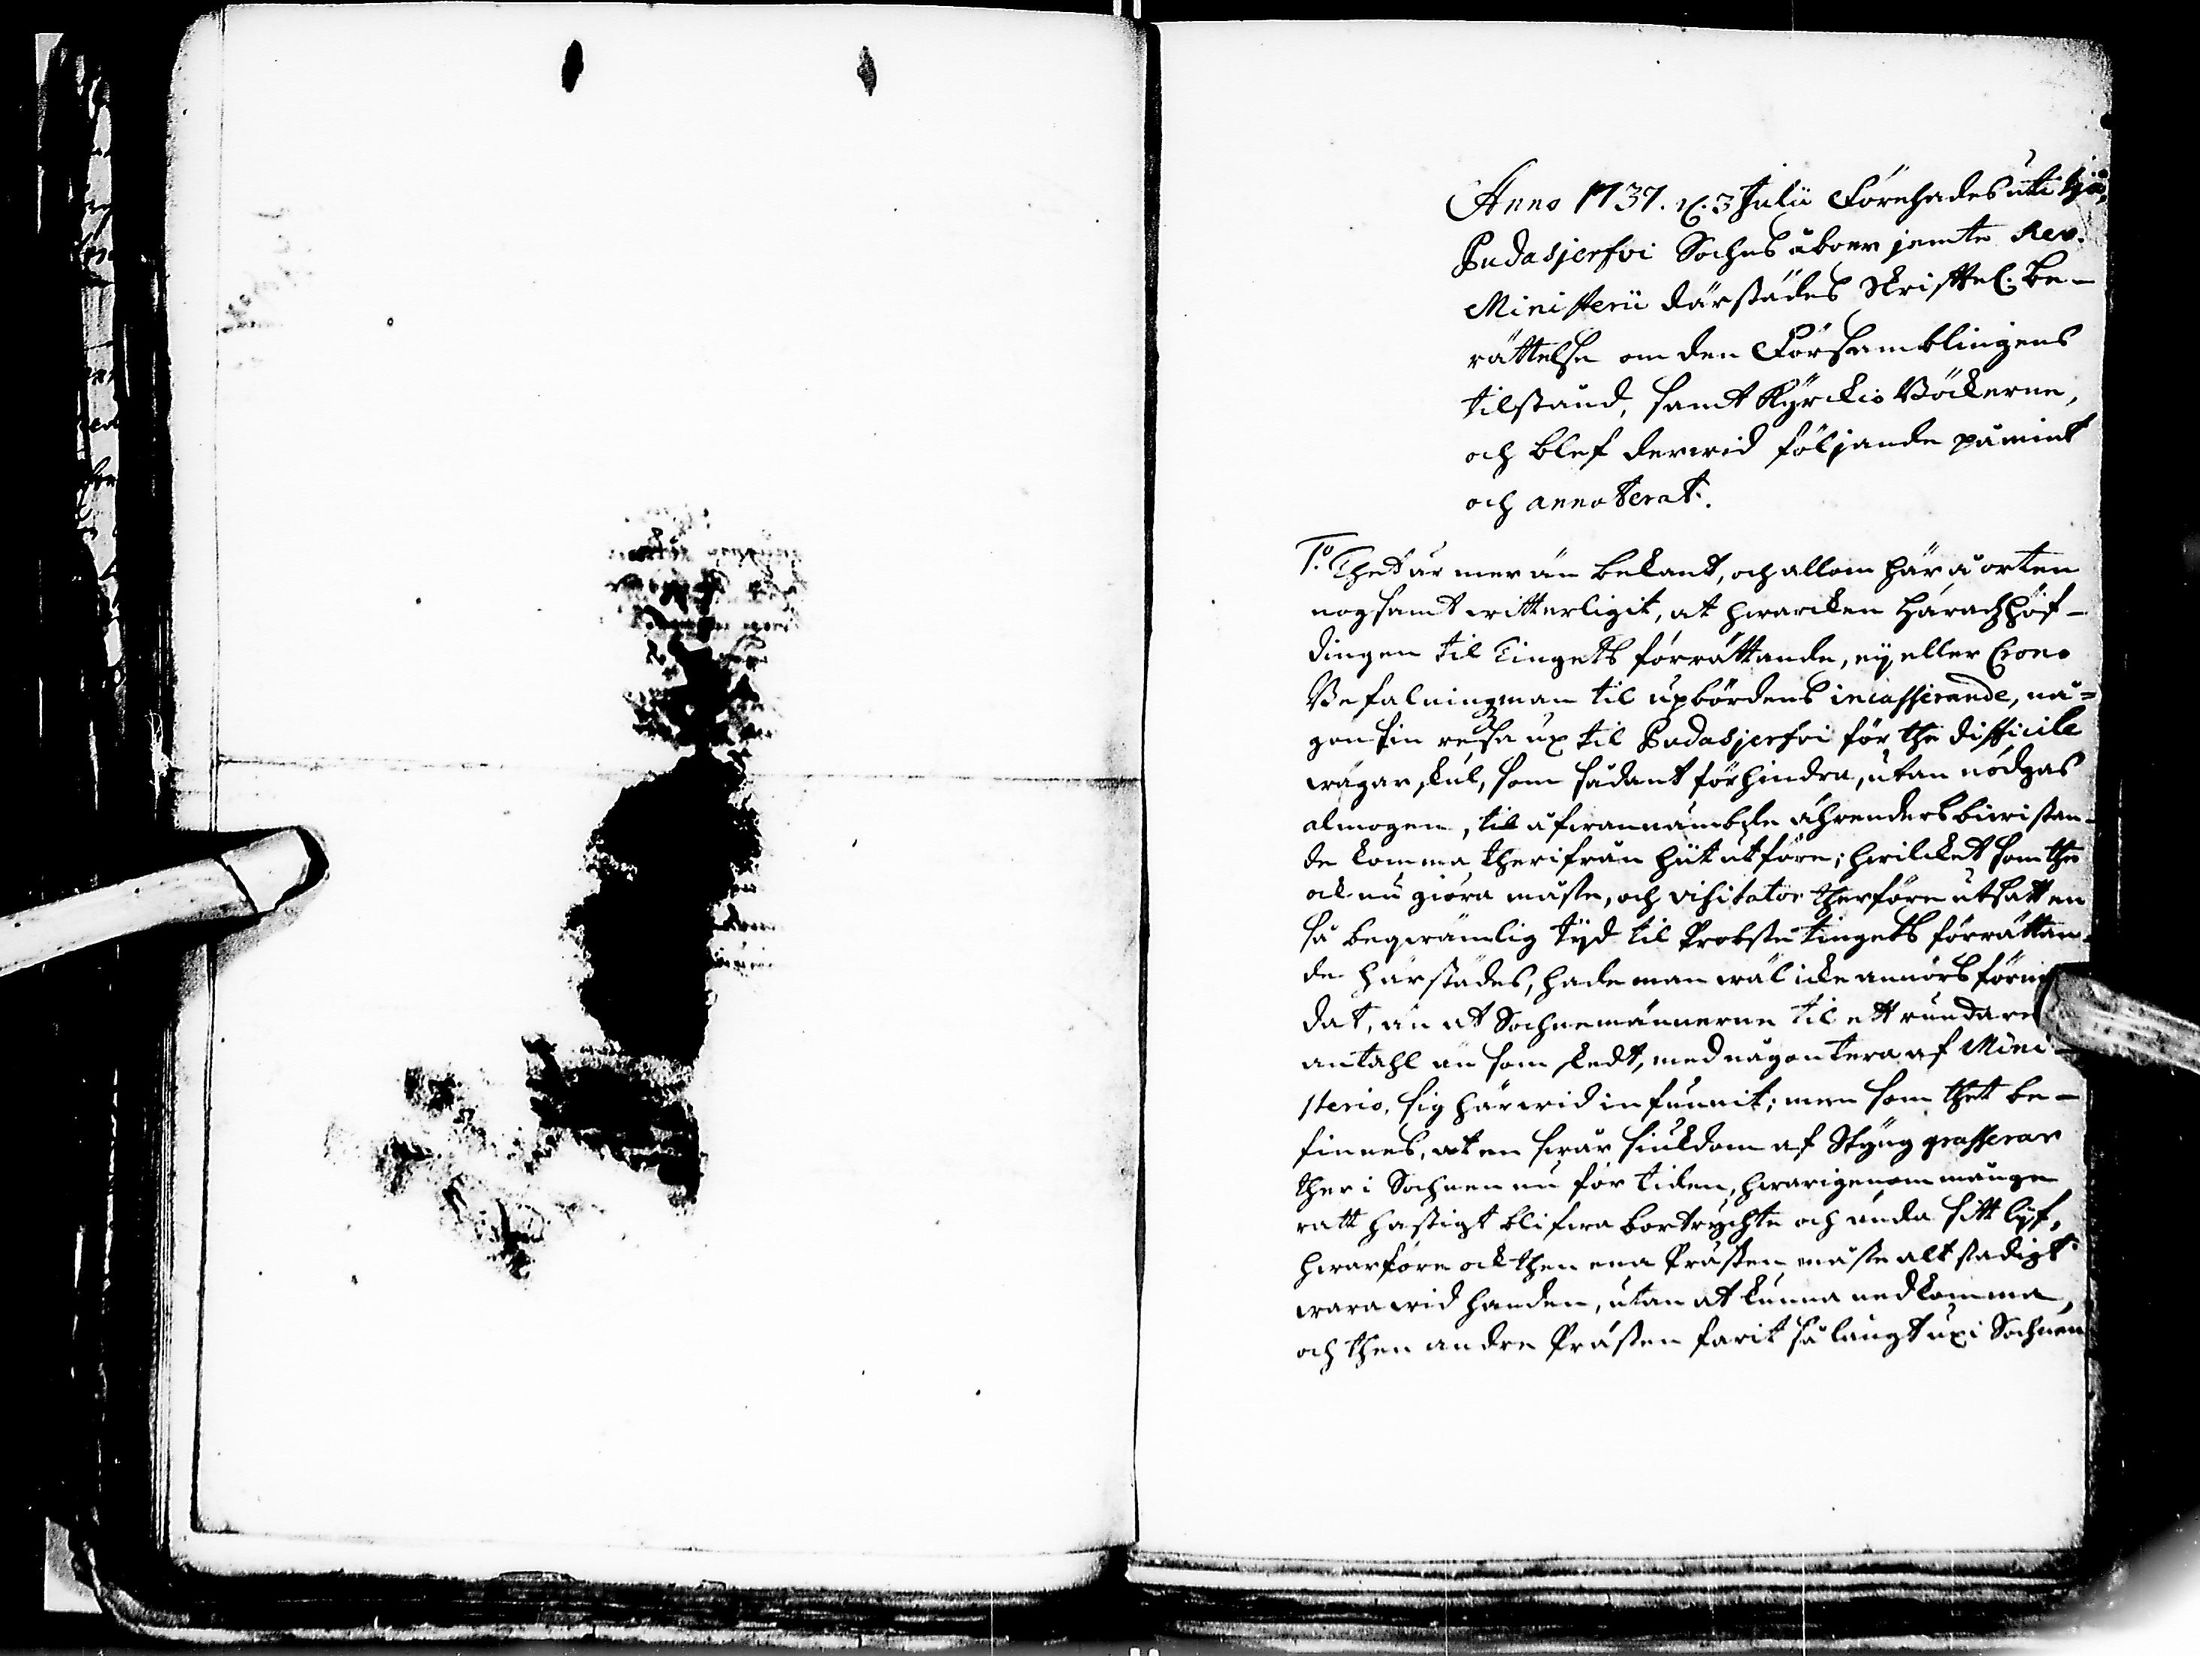 Anno 1737. d. 3 Julii Förehades uti Ijå,
Pudasjerfwi Sochns åboer jemte Rev.
Ministerii därstädes Skriftel. be-
rättelse om den Församblingens
tilstånd, samt Kyrckio Böckerne,
och blef derwid följande påmint
och annoterat.
1:o Thet är mer än bekant, och allom här å orten
nogsamt witterligit, at hwarcken Häradzhöf-
dingen til Tingets förrättande, ey eller Crono
Befalningzman til upbördens incasserande, nå-
gonsin resa up til Pudasjerfwi för the difficile
wägar skul, som sådant förhindra, utan nödgas
almogen, til åfwannämbde ährenders biwistan-
de komma therifrån hit utföre; hwilcket som the
ock nu giöra måste, och visitator therföre utsatt en
så beqwämlig tyd til Probste Tingets förrättan-
de härstädes, hade man wäl icke annors
dat, än at Sochnemännerne til ett
antahl än som skedt, med någontera af Mini-
sterio, sig härwid infunnit; men som thet be-
finnes, at en swår siukdom af Styng grasserar
ther i Sochnen nu för tiden, hwarigenom många
ratt hastigt blifwa bortryckte och ända sitt lijf,
hwarföre ock then ena Prästen måste altstädigt
wara wid handen, utan at kunna nedkomma,
och then andre Prästen farit så långt up i Sochnen